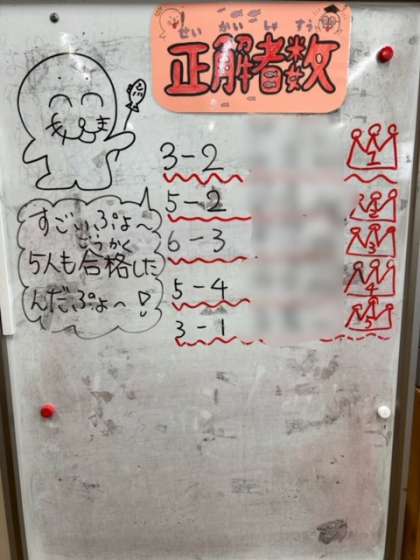 せいかいしゃすう
正解者数
3-2
1
5-2
2
6-3
3
5-4
4
3-1
5
すごいぷよ〜
ごうかく
5人も合格した
んだぷよ〜!